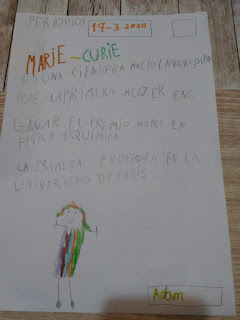 PERIODICO
17-3 2020
MARIE-CURIE
ES UNA CIENTIFICA NACIO EN VARSOVIA
FUE LA PRIMERA MUJER EN
GANAR EL PREMIO NOBEL EN
FISICA Y QUIMICA
LA PRIMERA PROFESORA EN LA
UNIVERSIDAD DE PARIS.
Adam